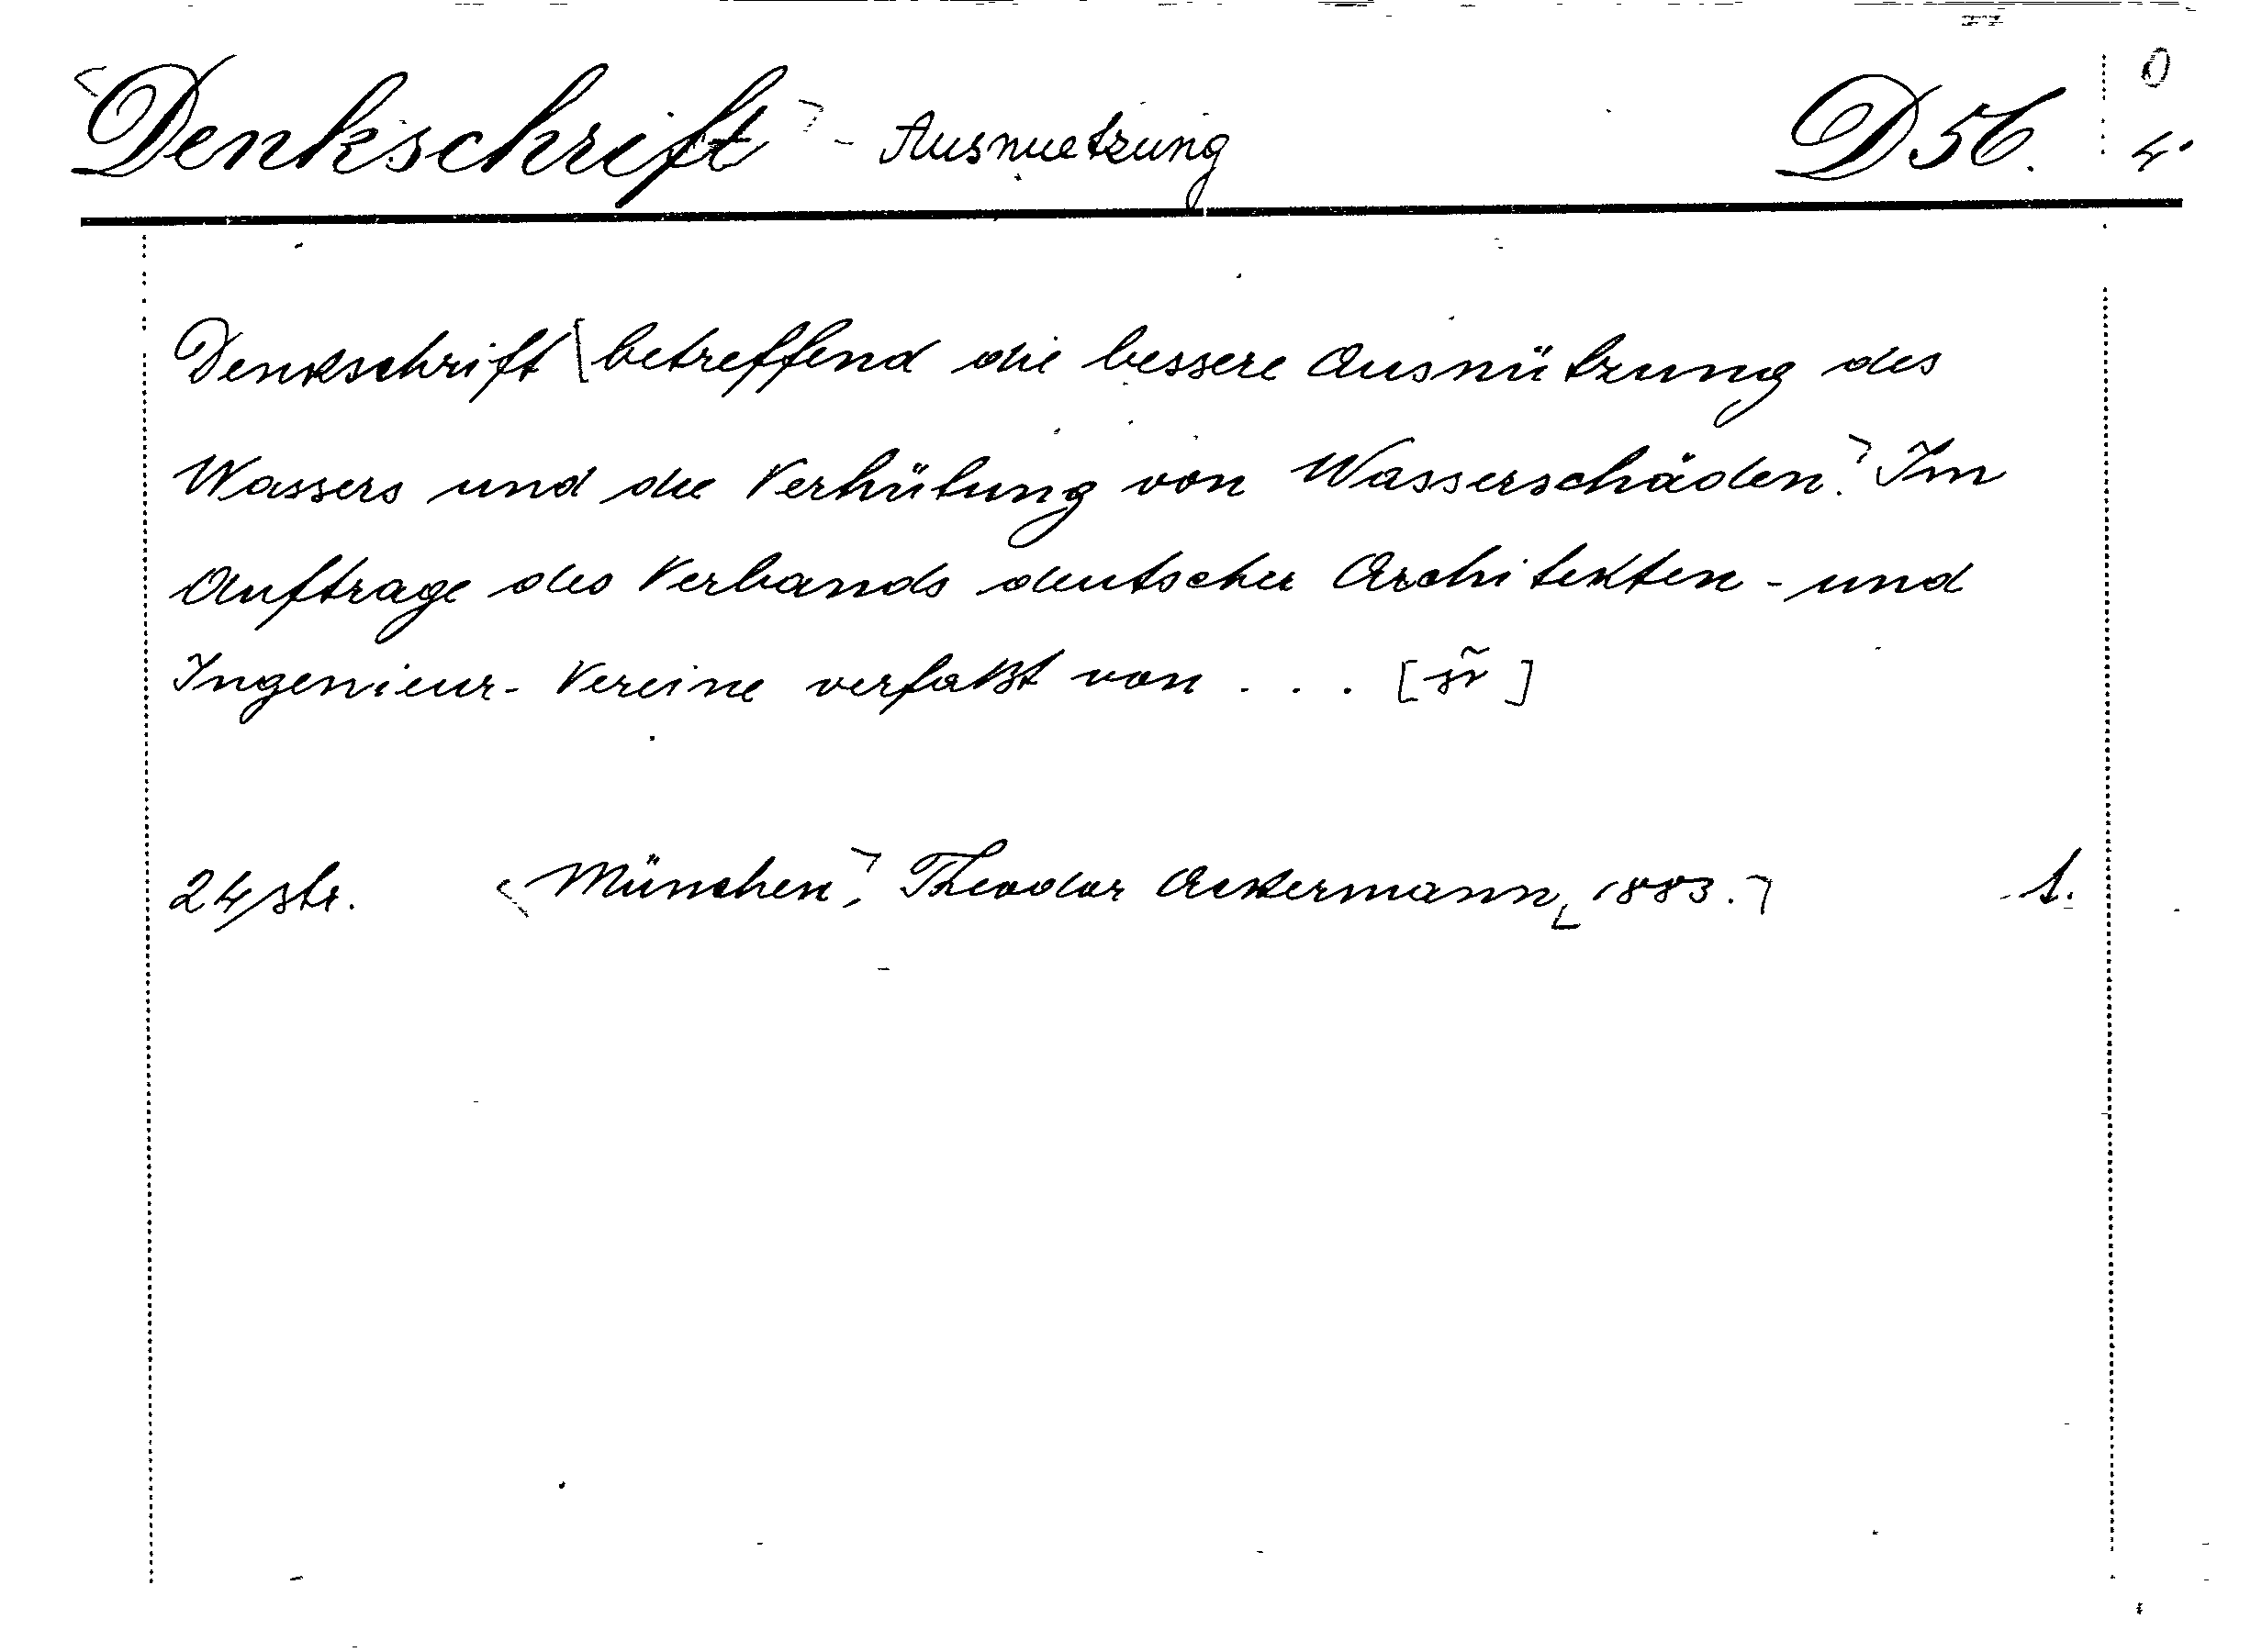 Denkschrift - Ausnuetzung D 56. 4°
Denkschrift [betreffend die bessere Ausnützung des
Wassers und die Verhütung von Wasserschäden. Im
Auftrage des Verbands deutscher Architekten - und
Ingenieur - Vereine verfaßt von . . .
24 str. München, Theodor Ackermann, 1883. 1.